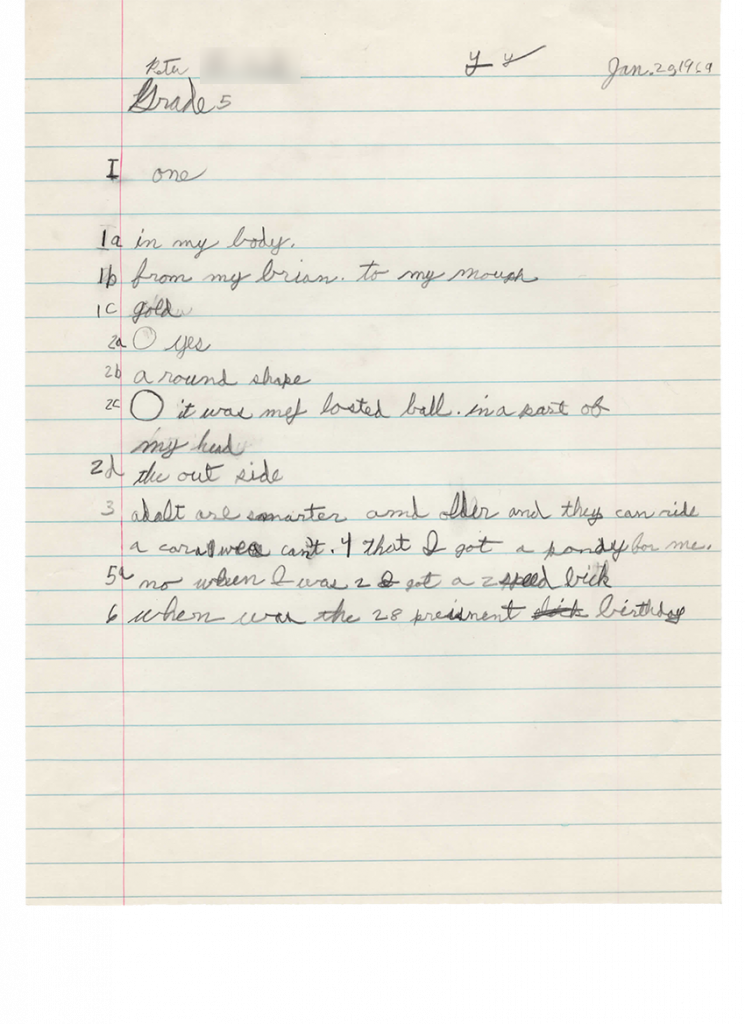 Y Y Jan. 29 1969
Grade 5
I one
1a in my body.
1b from my brian. to my mouph
1c gold
2a yes
2b a round shape
2c it was losted ball. in a part of
my head
2d the out side
3 adalt are smarter amd older and they can ride
a car wee can't. 4 that I got a pondy for me.
5a no when I was 2 I got a 2 speed bick
6 when was the 28 birthday